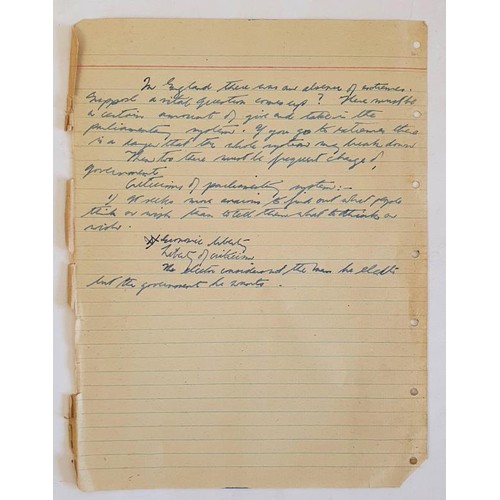 In England there was an absence of extremes.
Suppose a vital question comes up? There must be
a certain amount of give and take in the
parliamentary system. If you go to extremes there
is a danger that the whole system may break down
Then too there must be frequent change of
governments.
Criticisms of parliamentary system:-
1) It seeks more anxious to find out what people
think or wish than to tell them what to think or
wish.
Economic liberty
Liberty of criticism
The elector considered the man he elects
but the government he wants.